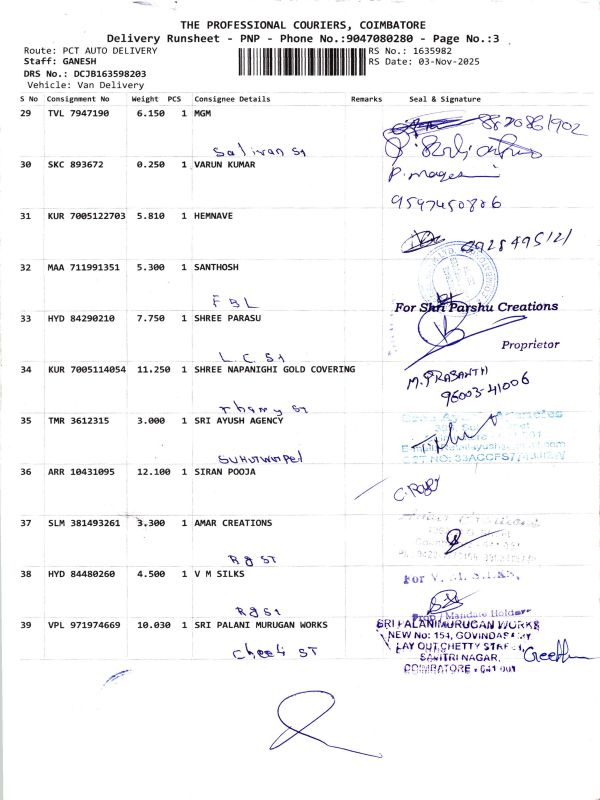 THE PROFESSIONAL COURIERS, COIMBATORE
Delivery Runsheet - PNP - Phone No.:9047080280 - Page No.:3
Route: PCT AUTO DELIVERY
RS No.: 1635982
Staff: GANESH
RS Date: 03-Nov-2025
DRS No.: DCJB163598203
Vehicle: Van Delivery
S No Consignment No Weight PCS Consignee Details Remarks Seal & Signature
29 TVL 7947190 6.150 1 MGM
Salivan St
30 SKC 893672 0.250 1 VARUN KUMAR
9597450806
31 KUR 7005122703 5.810 1 HEMNAVE
32 MAA 711991351 5.300 1 SANTHOSH
FBL
For Shri Parshu Creations
33 HYD 84290210 7.750 1 SHREE PARASU
Proprietor
L.C. St
34 KUR 7005114054 11.250 1 SHREE NAPANIGHI GOLD COVERING
M.PRASANTH
96003-41006
35 TMR 3612315 3.000 1 SRI AYUSH AGENCY
36 ARR 10431095 12.100 1 SIRAN POOJA
37 SLM 381493261 3.300 1 AMAR CREATIONS
Rg ST
38 HYD 84480260 4.500 1 V M SILKS
For V. M. SILKS,
Rg St
Prop / Mandate Holder
39 VPL 971974669 10.030 1 SRI PALANI MURUGAN WORKS
SRI PALANIMURUGAN WORKS
NEW No: 154, GOVINDASAMY
LAY OUT CHETTY STREET,
SAVITRI NAGAR,
COIMBATORE - 641 001